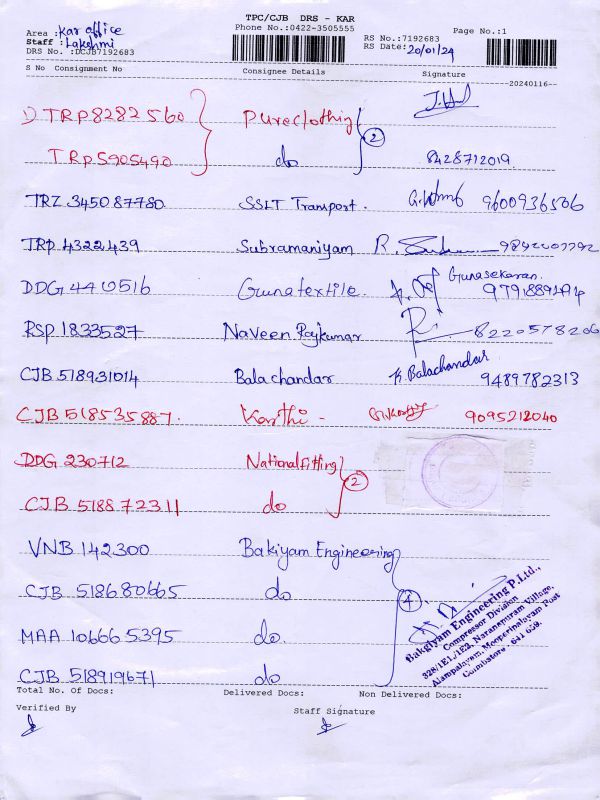 TPC/CJB DRS - KAR
Phone No.:0422-3505555
Page No.:1
Area : Kar office
RS No.:7192683
Staff : Lakshmi
RS Date: 20/01/24
DRS No. :DCJB7192683
S No Consignment No Consignee Details Signature
20240116--
TRP8282560 Pureclothing 2
TRP5905490 do 8428712019
TRZ 345087780 SSLT Transport. 9600936506
TRP 4322439 Subramaniyam
DDG 4410516 Gunatextile Gunasekaran.
RSP 1833527 Naveen Rajkumar 8220578206
CJB 518931014 Balachandar K. Balachandar 9489782313
CJB 518535887. Karthi - 9095212040
DDG 230712 Nationalfitting 2
CJB 518872311 do
VNB 142300 Bakiyam Engineering
CJB 518680665 do 4
MAA 106665395 do
CJB 518919671 do
Bakgiyam Engineering P.Ltd.,
Compressor Division
328/1E1,/1E2, Naranapuram Village,
Alampalayam, Mooperipalayam Post
Coimbatore - 641 659.
Total No. Of Docs: Delivered Docs: Non Delivered Docs:
Verified By Staff Signature